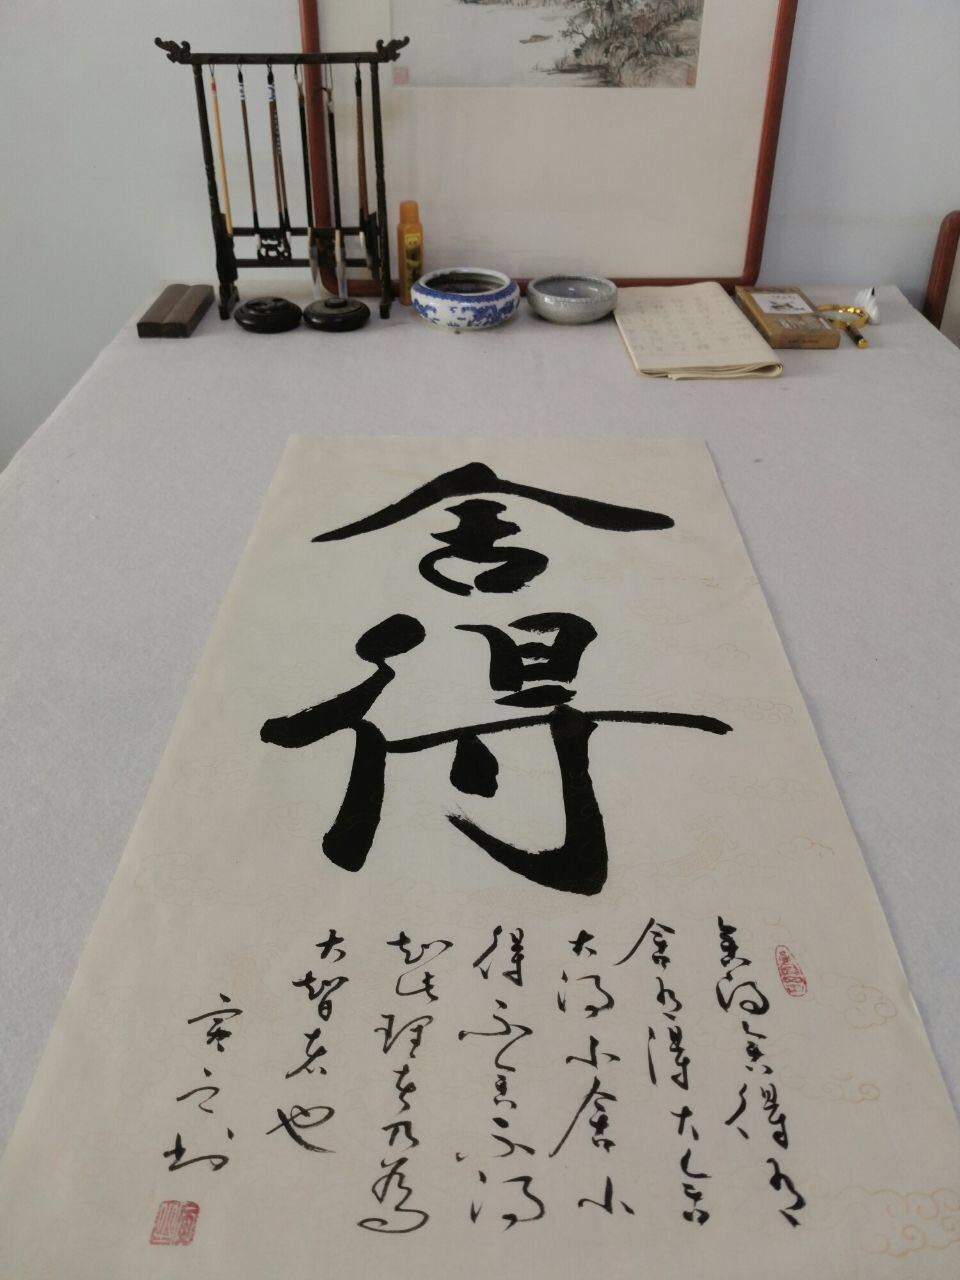 舍得
舍得舍得有
舍有得大舍
大得小舍小
得不舍不得
知此理者乃为
大智者也